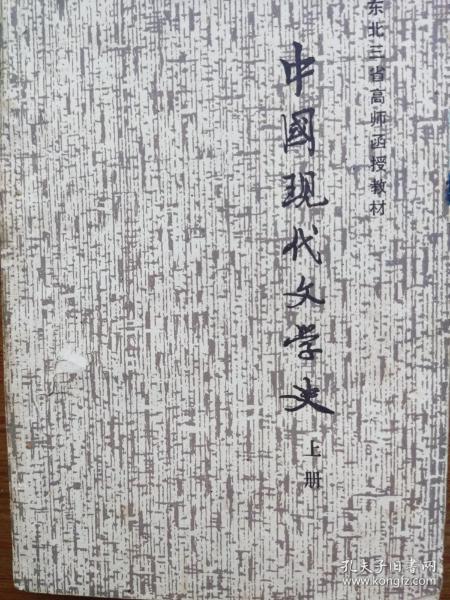 东北三省高师函授教材
中國现代文学史
上册
孔夫子旧书网
www.kongfz.com